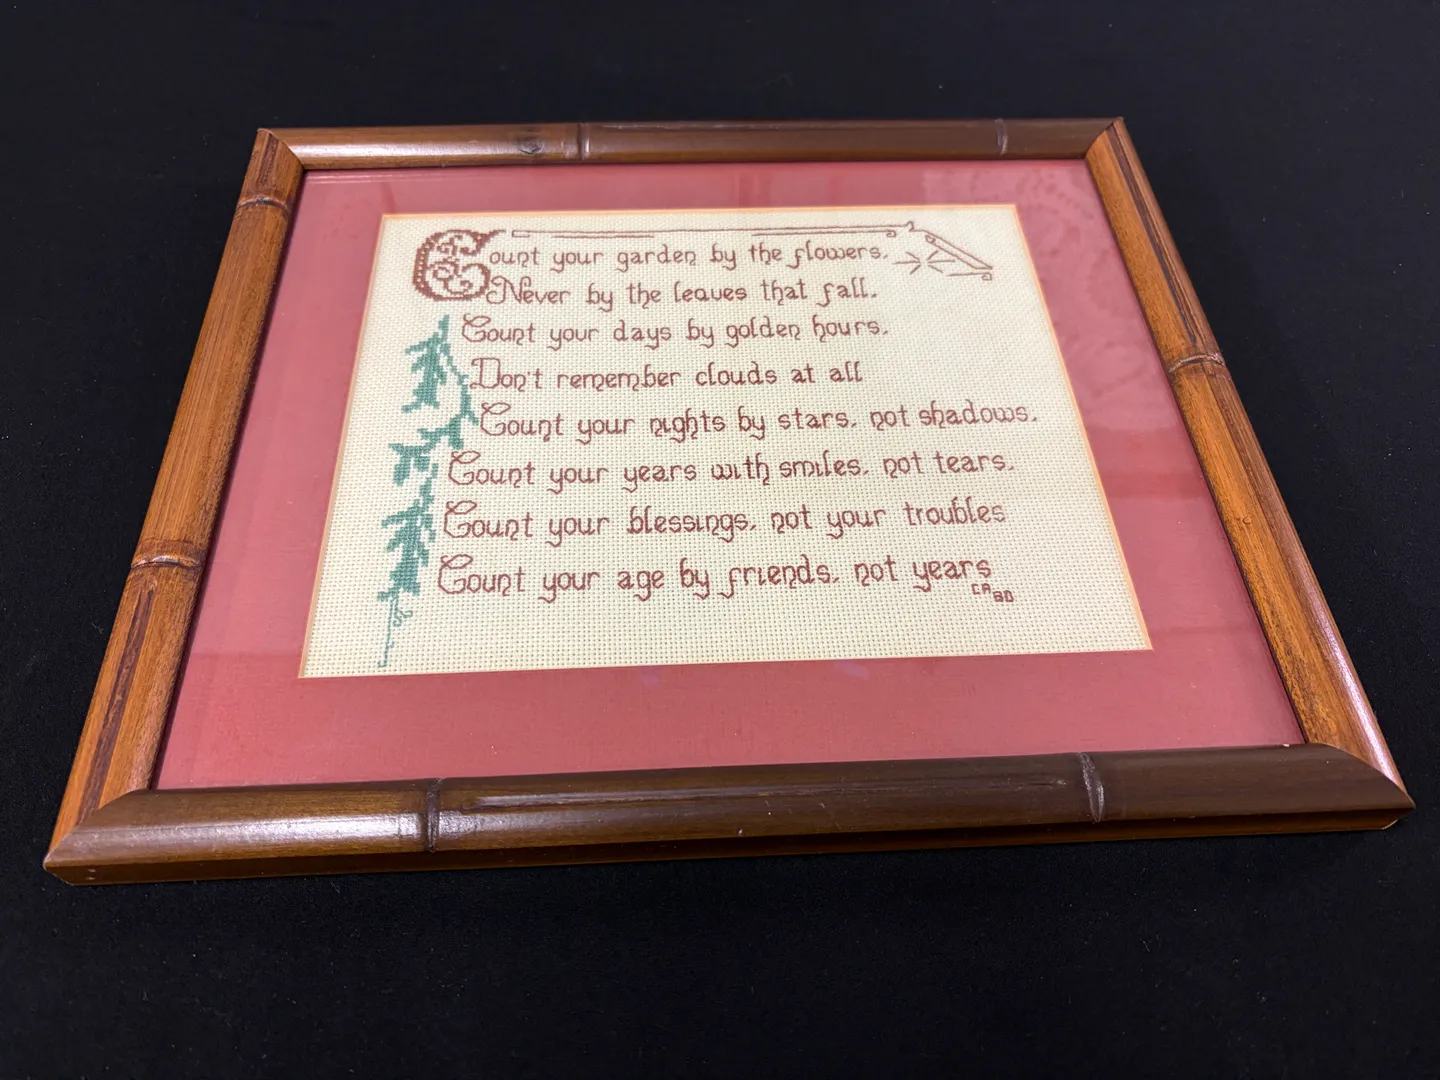 Count your garden by the flowers.
Never by the leaves that fall.
Count your days by golden hours.
Don't remember clouds at all
Count your nights by stars. not shadows.
Count your years with smiles. not tears.
Count your blessings. not your troubles
Count your age by friends. not years
CA80